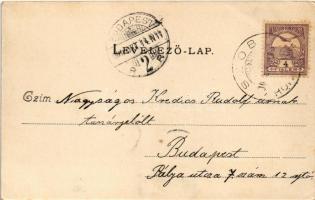 BUDAPEST
2
LEVELEZŐ-LAP.
4
Czim: Nagyságos Kredics Rudolf úrnak
Budapest
Pálya utcza 7. szám 12 ajtó